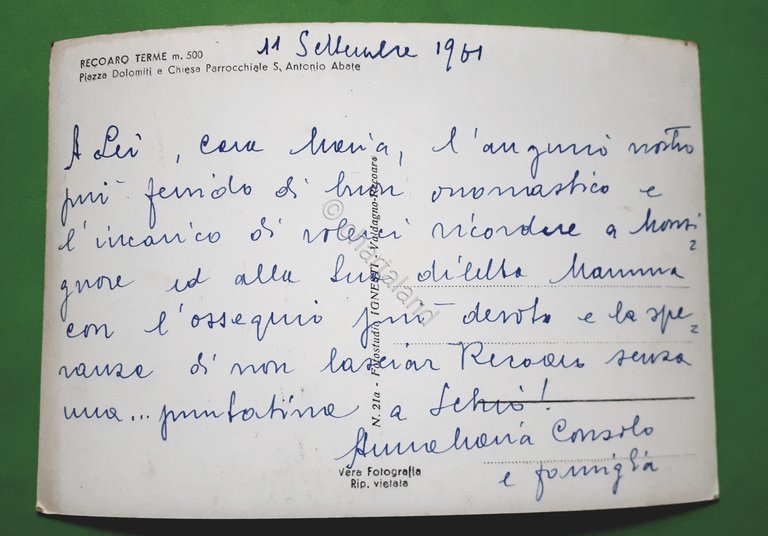 RECOARO TERME m. 500
Piazza Dolomiti e Chiesa Parrocchiale S. Antonio Abate
11 Settembre 1961
A Lei, cara Maria, l'augurio nostro
più fervido di buon onomastico e
l'incarico di volerci ricordare a Monsi=
gnore ed alla Sua diletta Mamma
con l'ossequio più devoto e la spe=
ranza di non lasciar Recoaro senza
una... puntatina a Schio!
Annamaria Consolo
e famiglia
N. 21a - Fotostudio IGNESTI - Valdagno-Recoaro
Vera Fotografia
Rip. vietata
© chartaland